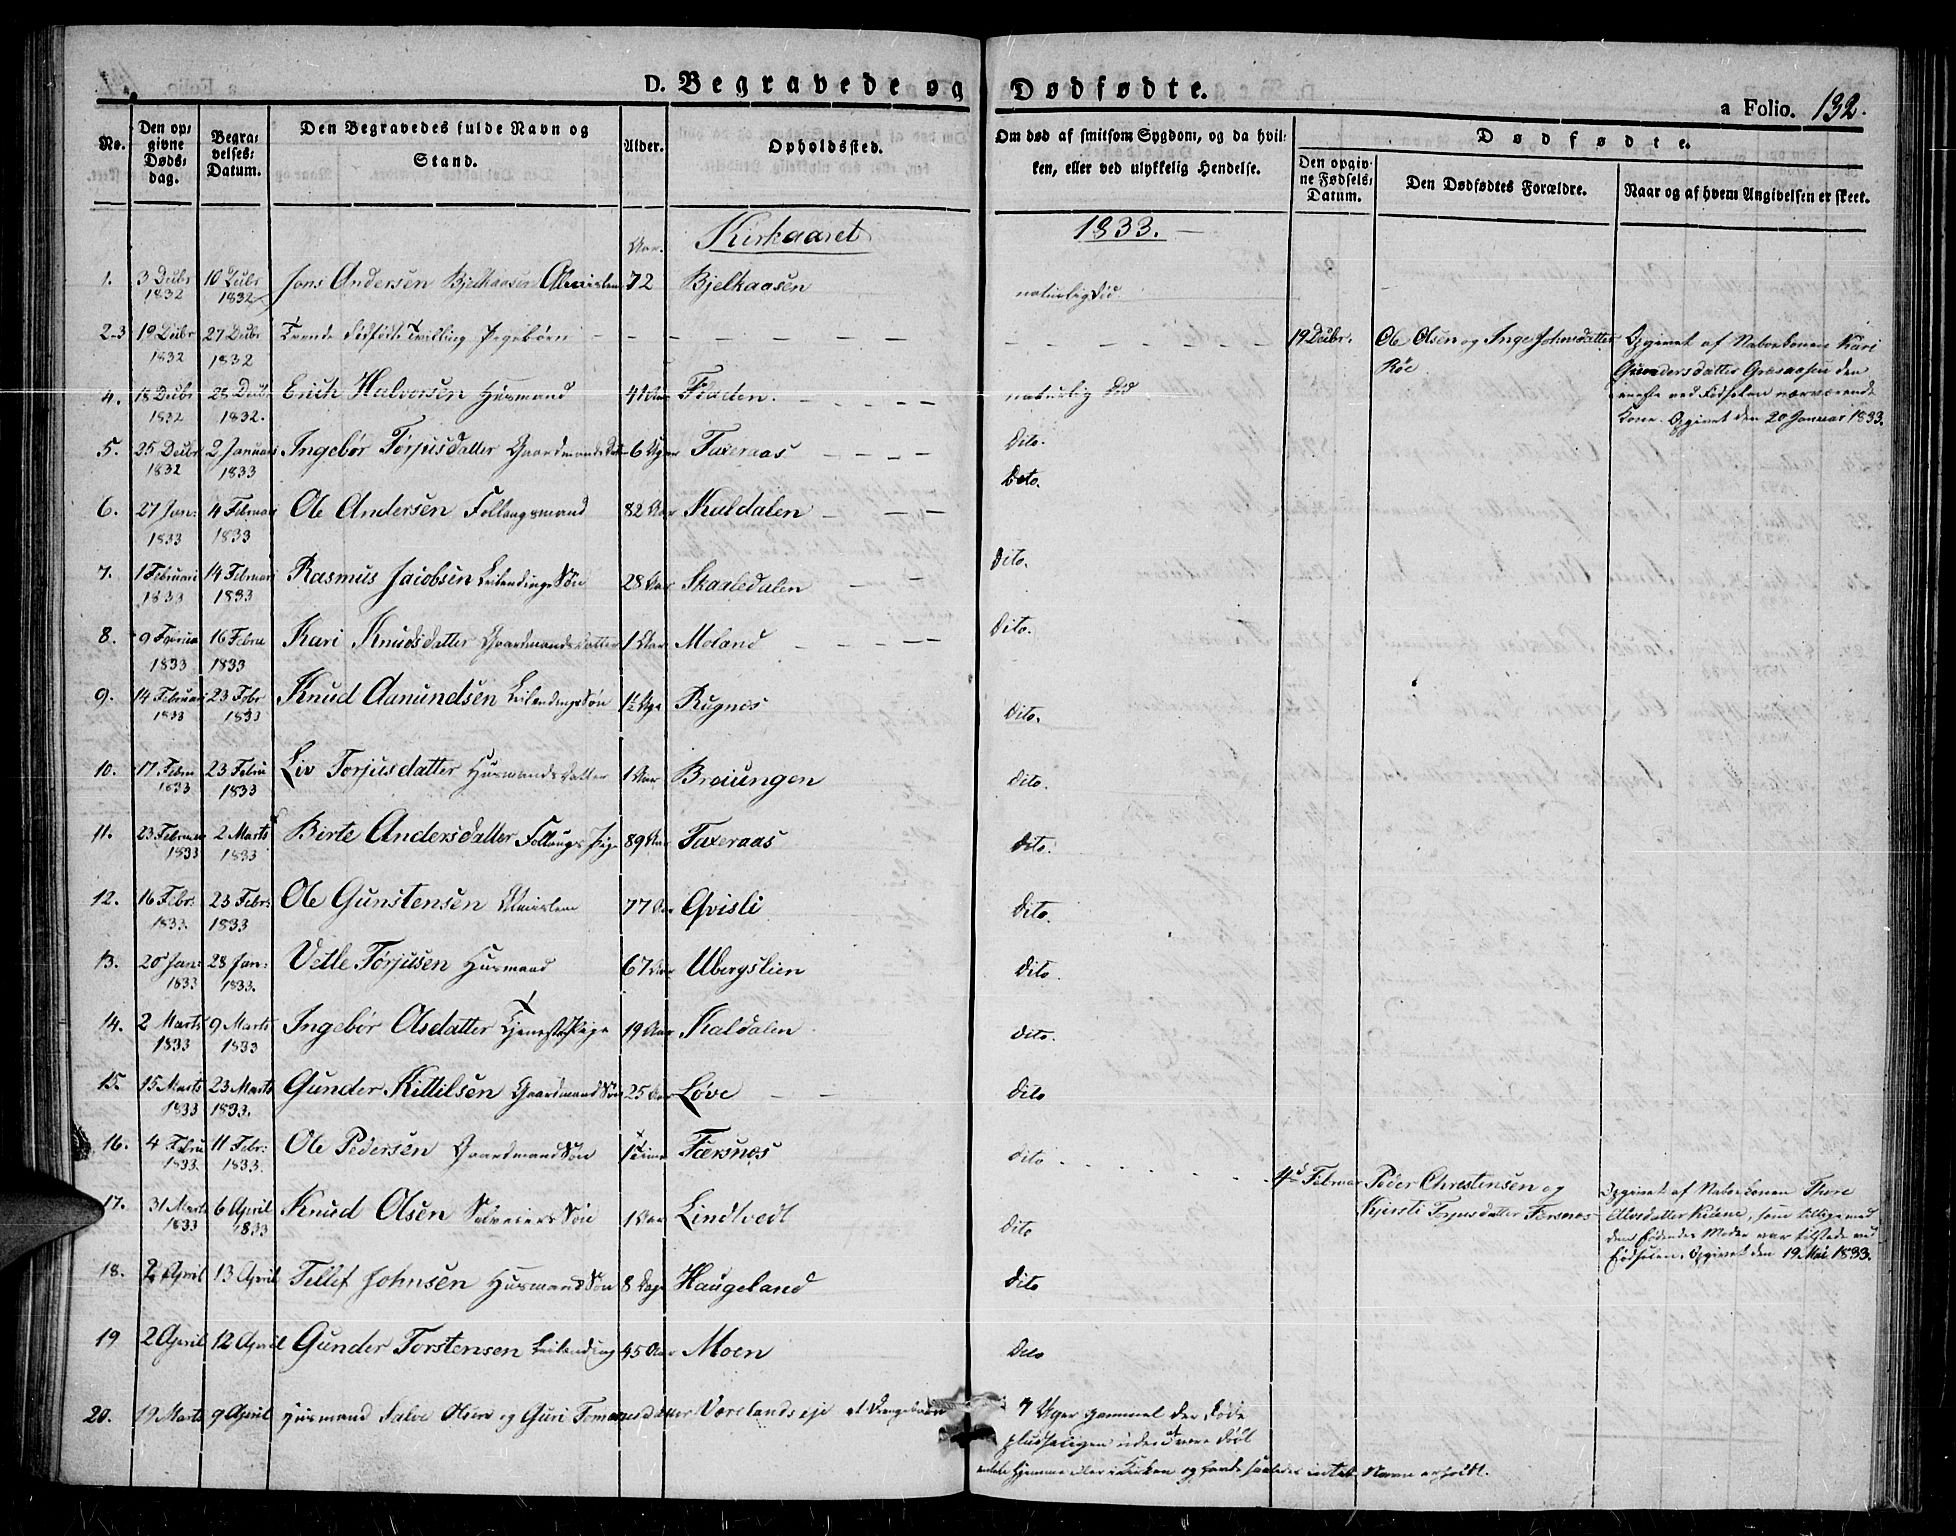 D. Begravede og Dødfødte.
a Folio. 132.
No. Den opgivne Dødsdag. Begravelses-Datum. Den Begravedes fulde Navn og Stand. Alder. Opholdssted. Om død af smitsom Sygdom, og da hvilken, eller ved ulykkelig Hendelse. Dødfødte.
Den opgivne Fødsels-Datum. Den Dødfødtes Forældre. Naar og af hvem Angivelsen er skeet.
Aar. Kirkaaret 1833.
1. 3 Decbr 1832 10 Decbr 1832 Jens Andersen Bjelkaasen 72 Bjelkaasen naturlig Død.
2-3 19 Decbr 1832 27 Decbr 1832 Tvende dødfødte Tvilling Pigebørn 19 Decbr. Ole Olsen og Inge Johnsdatter
Röe
Opgivet af Nabokonen Kari
Gundersdatter Graaasen den
eneste ved Fødselen nærværende
Kone. Opgivet den 20 Januar 1833.
4. 18 Decbr 1832 28 Decbr 1832. Erich Halvorsen Husmand 41 Aar naturlig Død
5. 25 Decbr 1832 2 Januar 1833 Ingebör Torjusdatter Gaardmands Dat 6 Uger Taxeraas Dito.
6. 27 Jan: 1833 4 Februar 1833 Ole Andersen Follaugsmand 82 Aar Kaldalen Dito.
7. 1 Februari 1833 14 Februari 1833 Rasmus Jacobsen Leilendings Søn 28 Aar Skaaledalen Dito.
8. 9 Februa 1833 16 Febru 1833 Kari Knudsdatter Gaardmandsdatter 1 Aar Moland Dito.
9. 14 Februari 1833 23 Febr 1833 Knud Aanundsen Leilendings Søn 1½ Uge Rugnes Dito.
10. 17 Febru 1833 23 Febru 1833 Liv Torjusdatter Husmandsdatter 1 Aar Breiungen Dito.
11. 23 Februar 1833 2 Marts 1833 Birte Andersdatter Follaugs Pige 89 Aar Taxeraas Dito.
12. 16 Febr: 1833. 23 Febr: 1833 Ole Gunstensen 77 Aar Qvisli Dito.
13. 20 Jan: 1833 28 Jan: 1833. Vetle Torjusen Husmand 67 Aar Ubergslien Dito.
14. 2 Marts 1833 9 Marts 1833 Ingebör Olsdatter Tjenestepige 19 Aar Kaldalen Dito.
15. 15 Marts 1833 23 Marts 1833. Gunder Kittilsen Gaardmand Søn 25 Aar Løve Dito
16. 4 Febru 1833. 11 Febr: 1833. Ole Pedersen Gaardmand Søn Færsnes Dito 4de Februar Peder Chrestensen og
Kjersti Torjusdatter Færsnes
Opgivet af Nabokonen Thore
som tillige med
den fødendes Moder var tilstede ved
Fødselen. Opgivet den 19 Mai 1833.
17. 31 Marts 1833 6 April 1833 Knud Olsen Selveiers Søn 1 Aar Lindtvedt Dito
18. 2 April 13 April Tellef Johnsen Husmand Søn 8 Dage Haugeland Dito
19 2 April 12 April Gunder Torstensen Leilending 45 Aar Moen Dito
20. 19 Marts 9 April Husmand Salve Olsen og Guri Tomasdatter Vorelands eje et Drengebarn 7 Uger gammel der døde
pludseligen uden at være døbt
enten hjemme eller i Kirken og havde saaledes intet Navn erholdt.